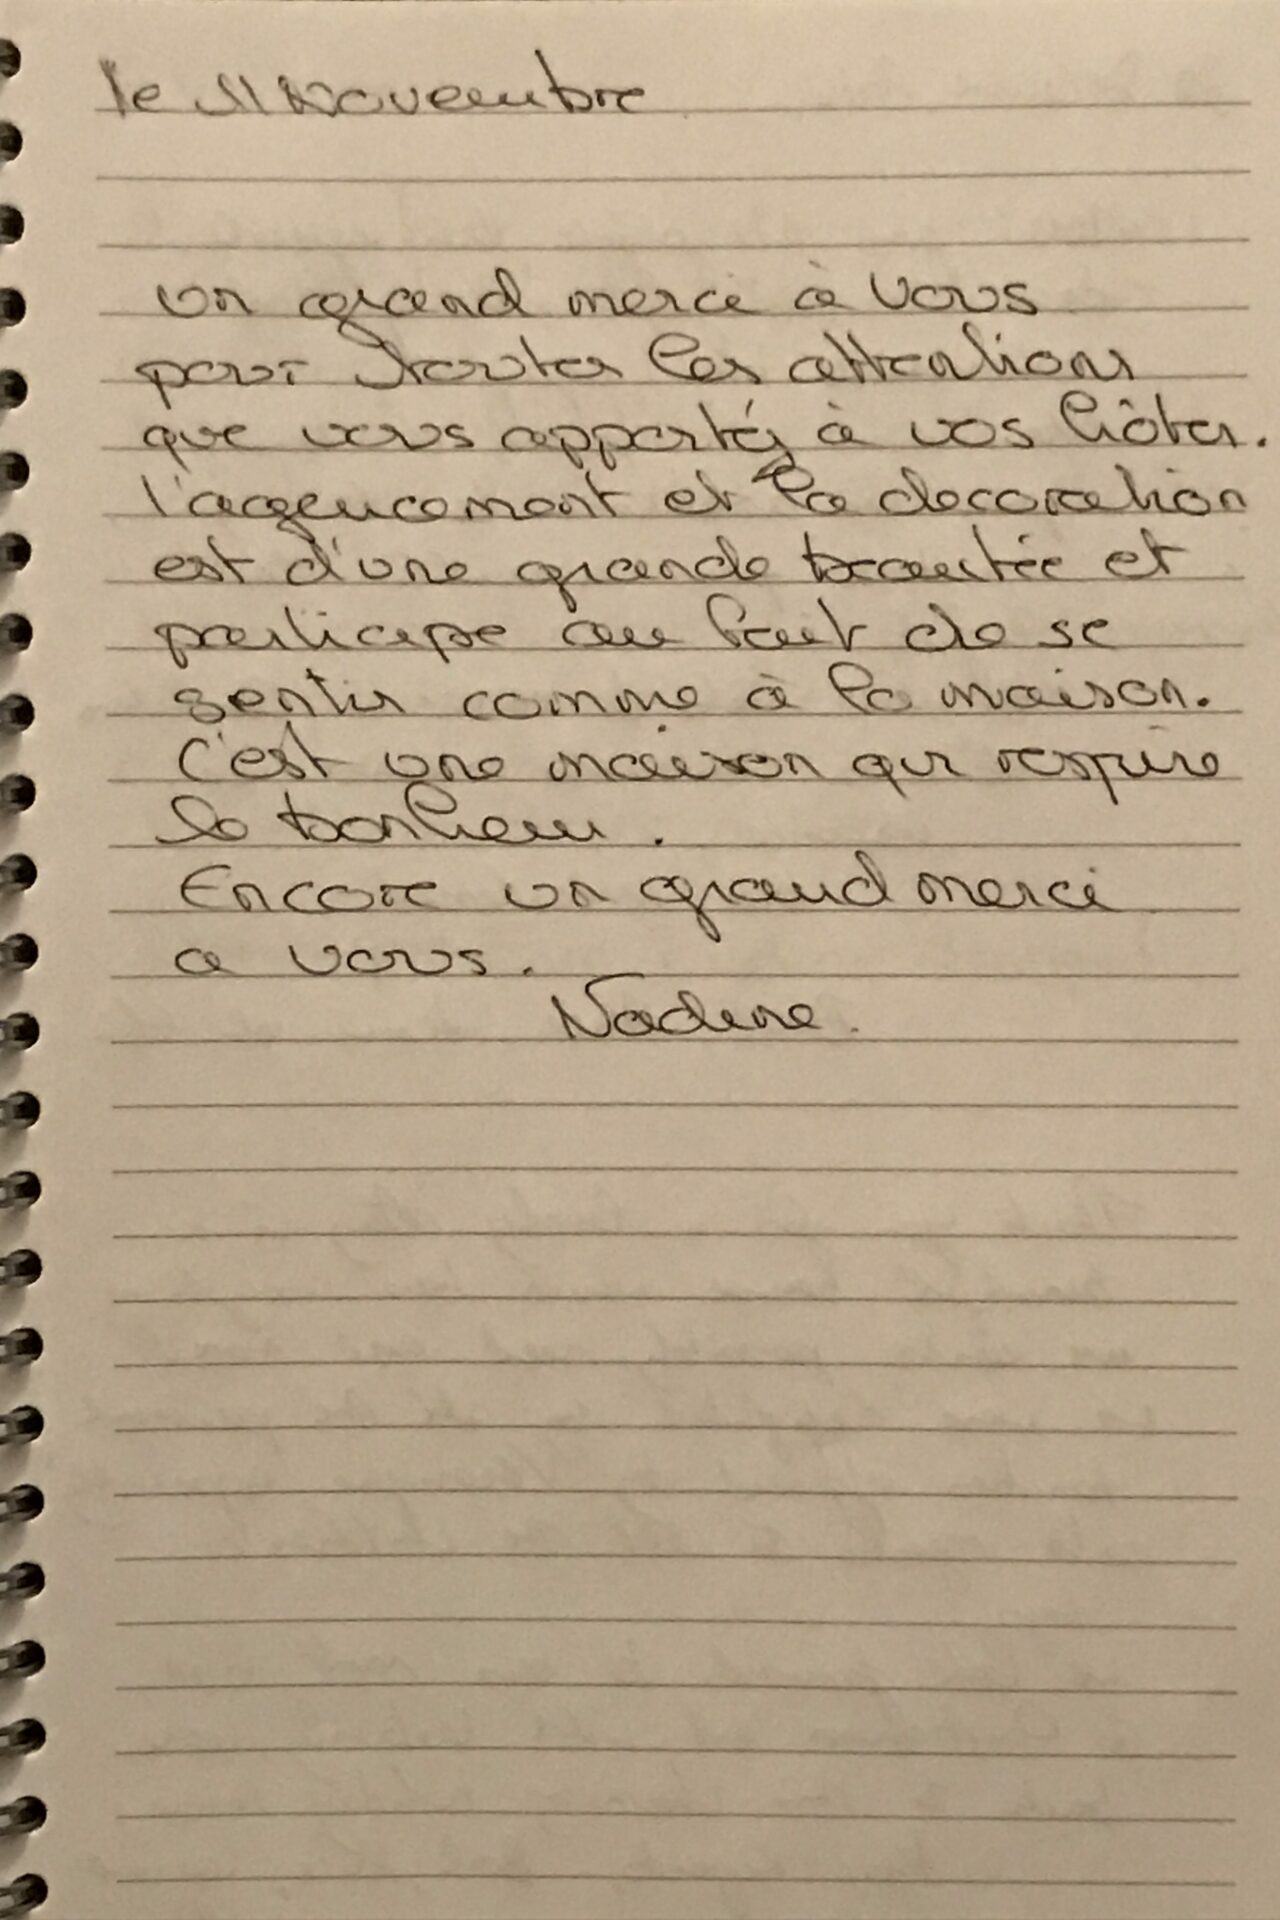 le 11 Novembre
un grand merci à vous
pour toutes les attentions
que vous apportés à vos hôtes.
l'agencement et la decoration
est d'une grande beautée et
participe au fait de se
sentir comme à la maison.
C'est une maison qui respire
le bonheur.
Encore un grand merci
a vous.
Nadine.